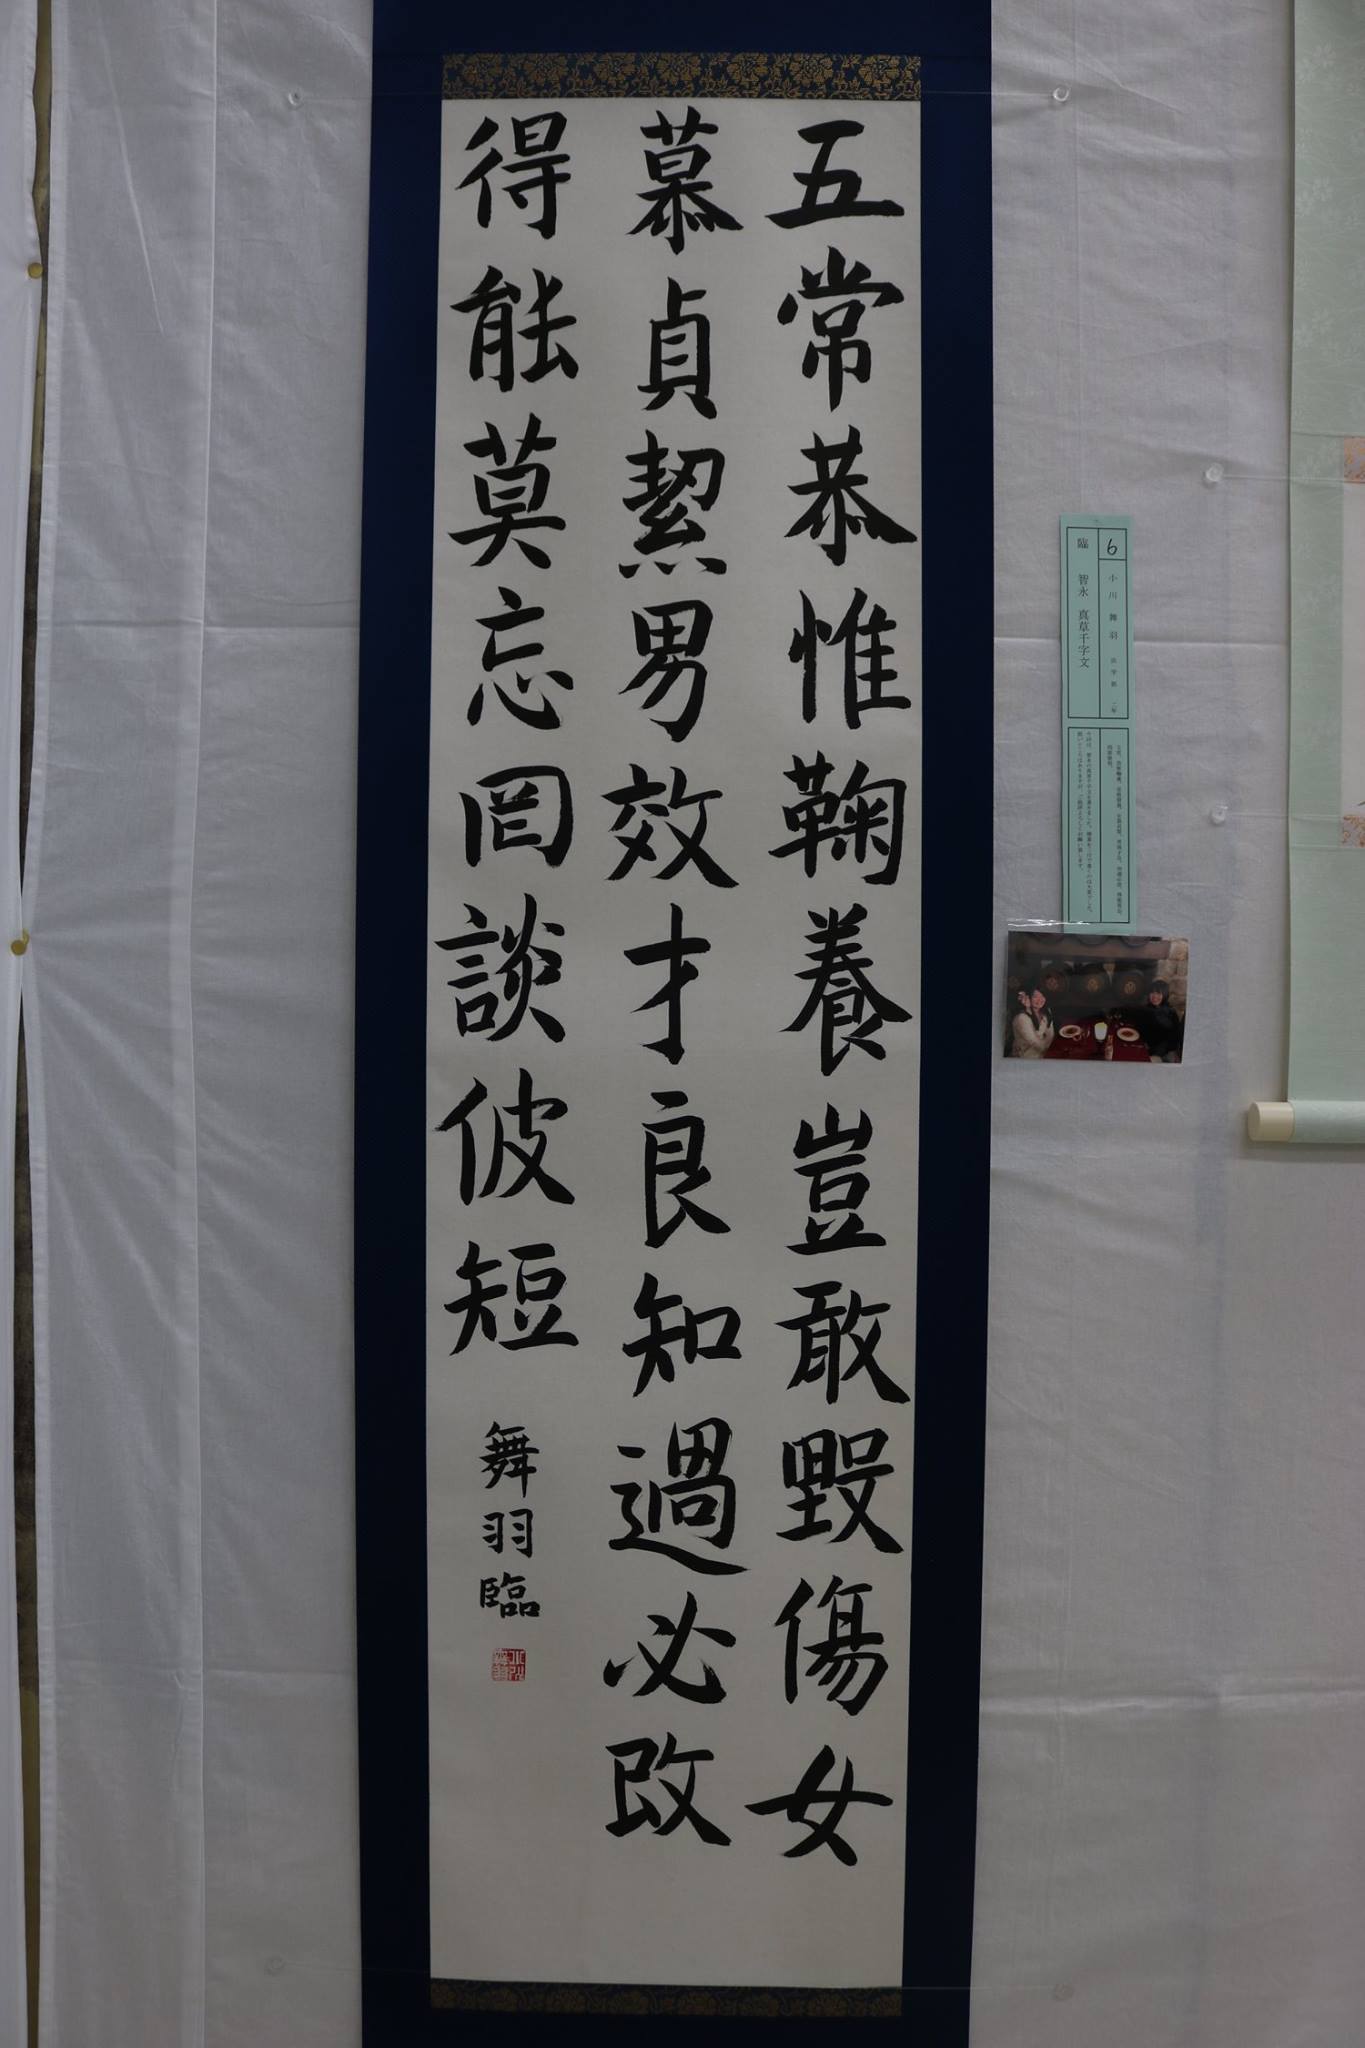 五常恭惟鞠養豈敢毀傷女
慕貞絜男效才良知過必改
得能莫忘罔談彼短
舞羽臨
6
小川舞羽 法学部 二年
臨 智永 真草千字文